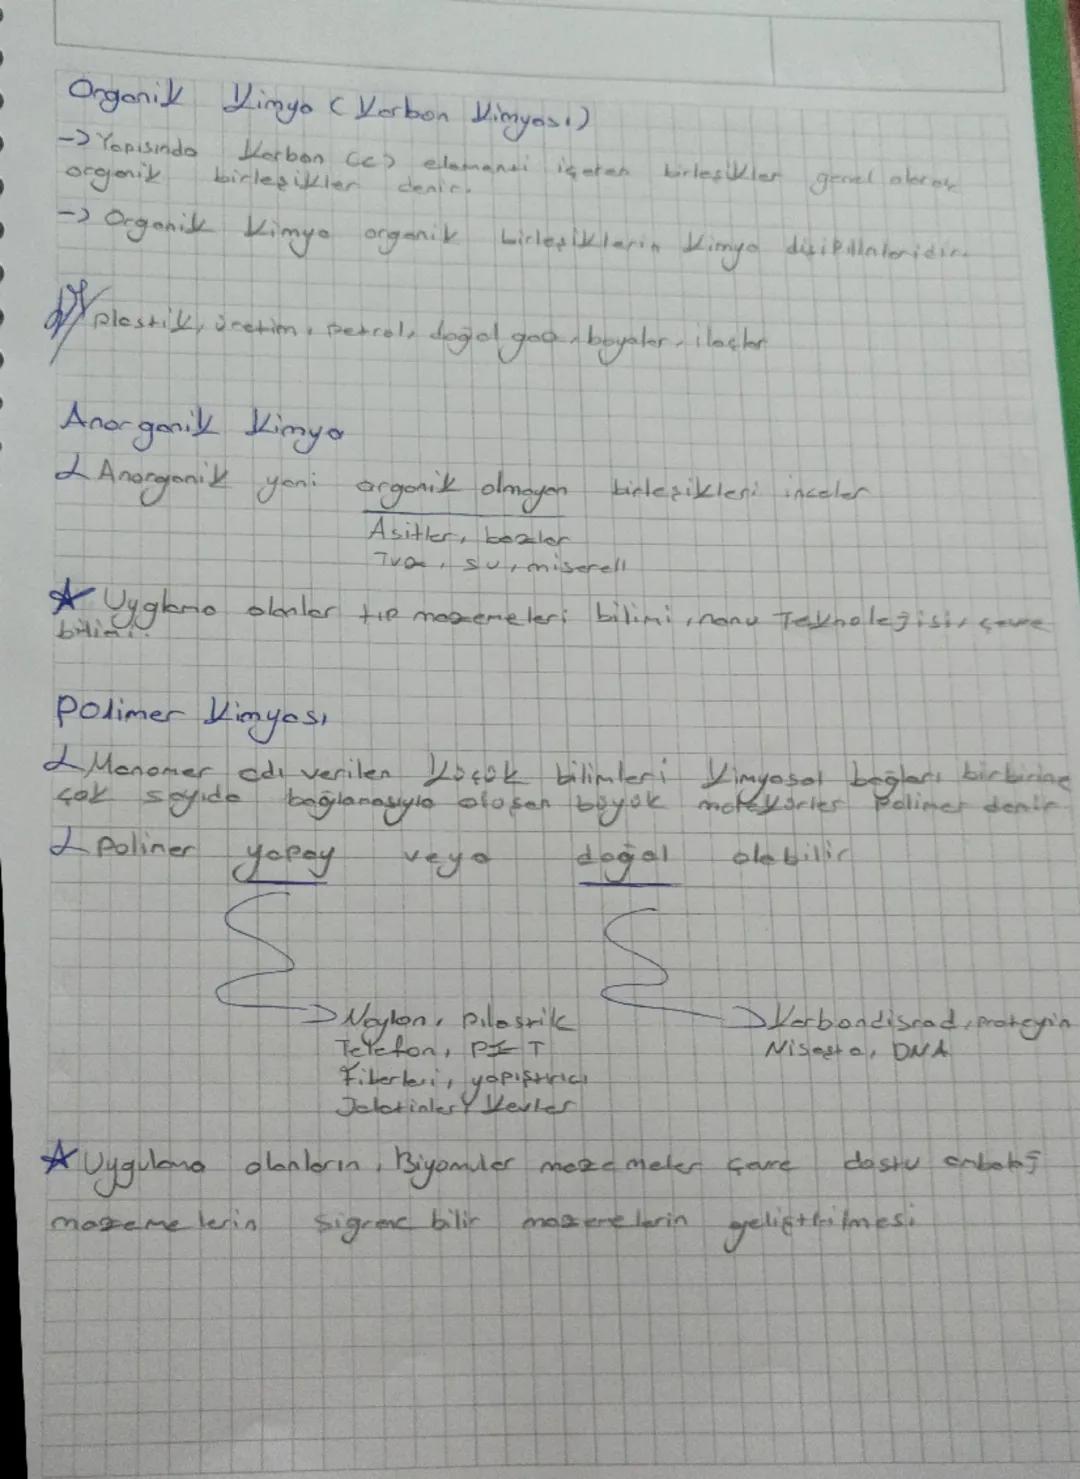 Organik Kimya (Karbon Kimyası)
-> Yapısında Karbon (C) elementi içeren birleşikler genel olarak
organik birleşikler denir.
-> Organik Kimya organik birleşiklerin Kimya disipilinleridir.
plastik, üretim, petrol, doğal gaz, boyalar, ilaçlar
Anorganik Kimya
Anorganik yani organik olmayan birleşikleri inceler
Asitler, bazlar
Tuz, su, miserell
★ Uyglama alanlar tıp mazemeleri bilimi, nano Teknolejisi, çevre
bilimi.
Polimer Kimyası
Monomer adı verilen Küçük bilimleri Kimyasal bağları birbirine
çok sayıda bağlanasıyla oluşan büyük moleküller Polimer denir
Polimer yapay veya doğal olabilir
-> Naylon, pilastik
Telefon, PET
Fiberleri, yapıştırıcı
Jelatinler
-> Karbondisrad, proteyin
Nişasta, DNA
★ Uygulama alanların, mazemeler çevre dostu
mazemelerin bilir mazemelerin geliştirilmesi